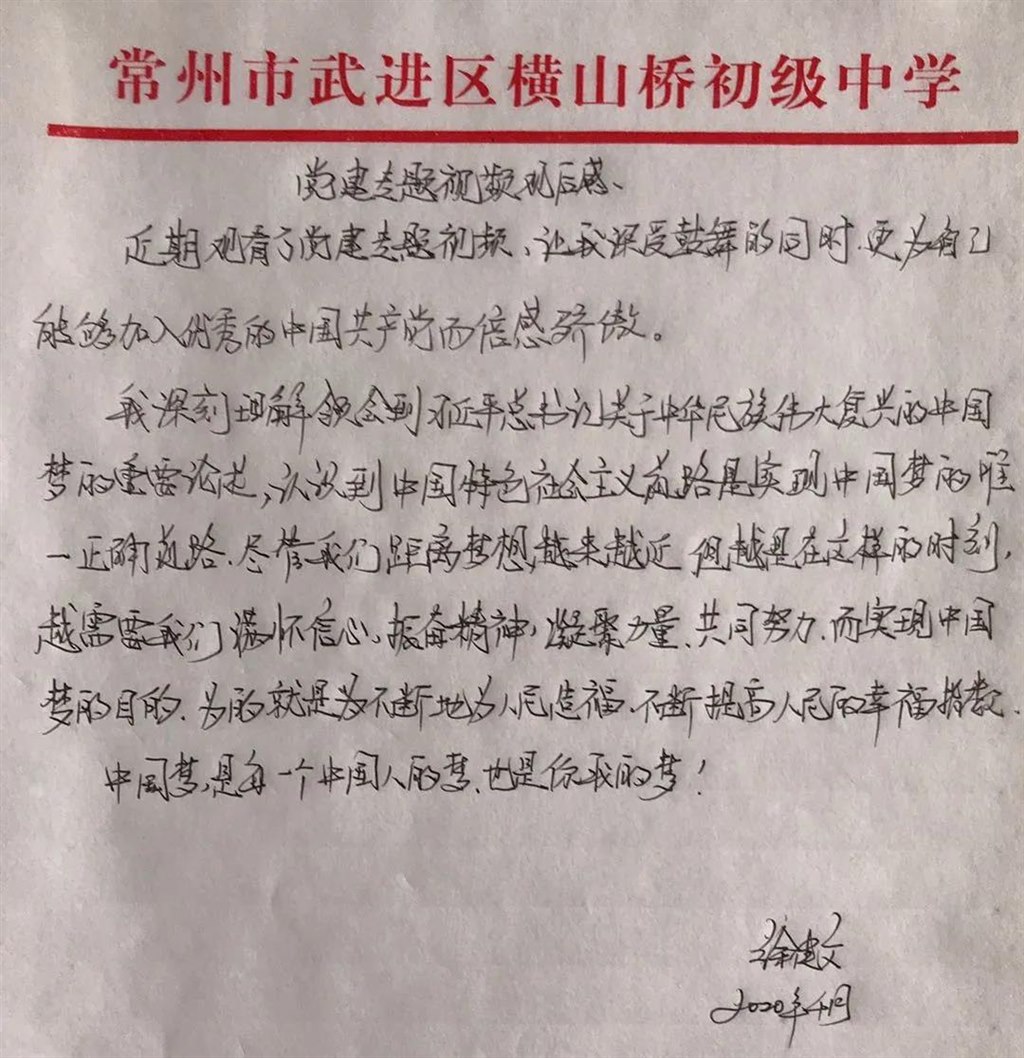 常州市武进区横山桥初级中学
党建专题视频观后感、
近期观看了党建专题视频、让我深受鼓舞的同时、更为自己
能够加入优秀的中国共产党而倍感骄傲。
我深刻理解领会到习近平总书记关于中华民族伟大复兴的中国
梦的重要论述,认识到中国特色社会主义道路是实现中国梦的唯
一正确道路.尽管我们距离梦想越来越近 但越是在这样的时刻,
越需要我们满怀信心、振奋精神,凝聚力量、共同努力.而实现中国
梦的目的.为的就是为不断地为人民造福、不断提高人民的幸福指数.
中国梦,是每一个中国人的梫、也是你我的梦!
徐建文
2020年4月